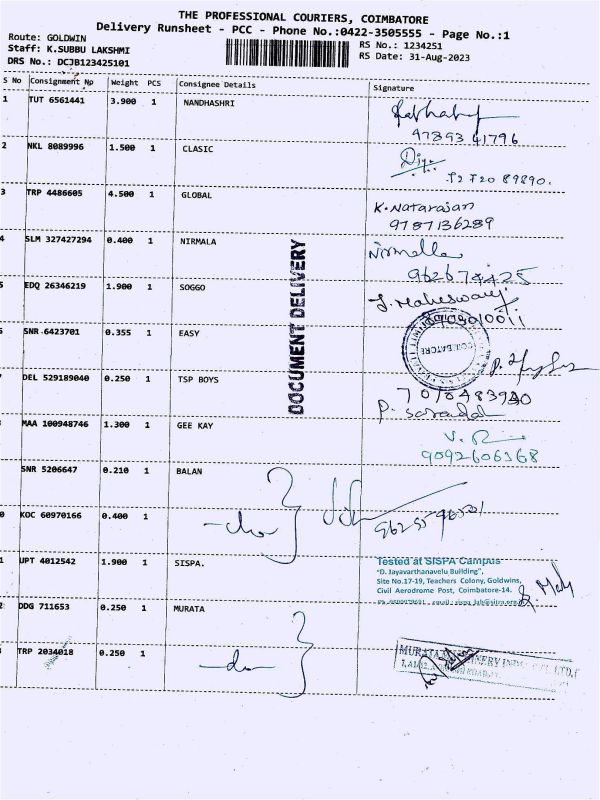 THE PROFESSIONAL COURIERS, COIMBATORE
Delivery Runsheet - PCC - Phone No.:0422-3505555 - Page No.:1
Route: GOLDWIN
Staff: K.SUBBU LAKSHMI
DRS No.: DCJB123425101
RS No.: 1234251
RS Date: 31-Aug-2023
S No Consignment No Weight PCS Consignee Details Signature
1 TUT 6561441 3.900 1 NANDHASHRI
97893 41796
2 NKL 8089996 1.500 1 CLASIC
3 TRP 4486605 4.500 1 GLOBAL
K. Natarajan
9787136289
4 SLM 327427294 0.400 1 NIRMALA
Nirmala
5 EDQ 26346219 1.900 1 SOGGO
J. Maheswari
DOCUMENT DELIVERY
SNR 6423701 0.355 1 EASY
COIMBATORE
DEL 529189040 0.250 1 TSP BOYS
MAA 100948746 1.300 1 GEE KAY
9092606368
SNR 5206647 0.210 1 BALAN
0 KOC 60970166 0.400 1
-do-
1 UPT 4012542 1.900 1 SISPA.
Tested at SISPA Campus
"D. Jayavarthanavelu Building",
Site No.17-19, Teachers Colony, Goldwins,
Civil Aerodrome Post, Coimbatore-14.
2 DDG 711653 0.250 1 MURATA
TRP 2034018 0.250 1
-do-
MURATA MACHINERY INDIA PVT. LTD.,